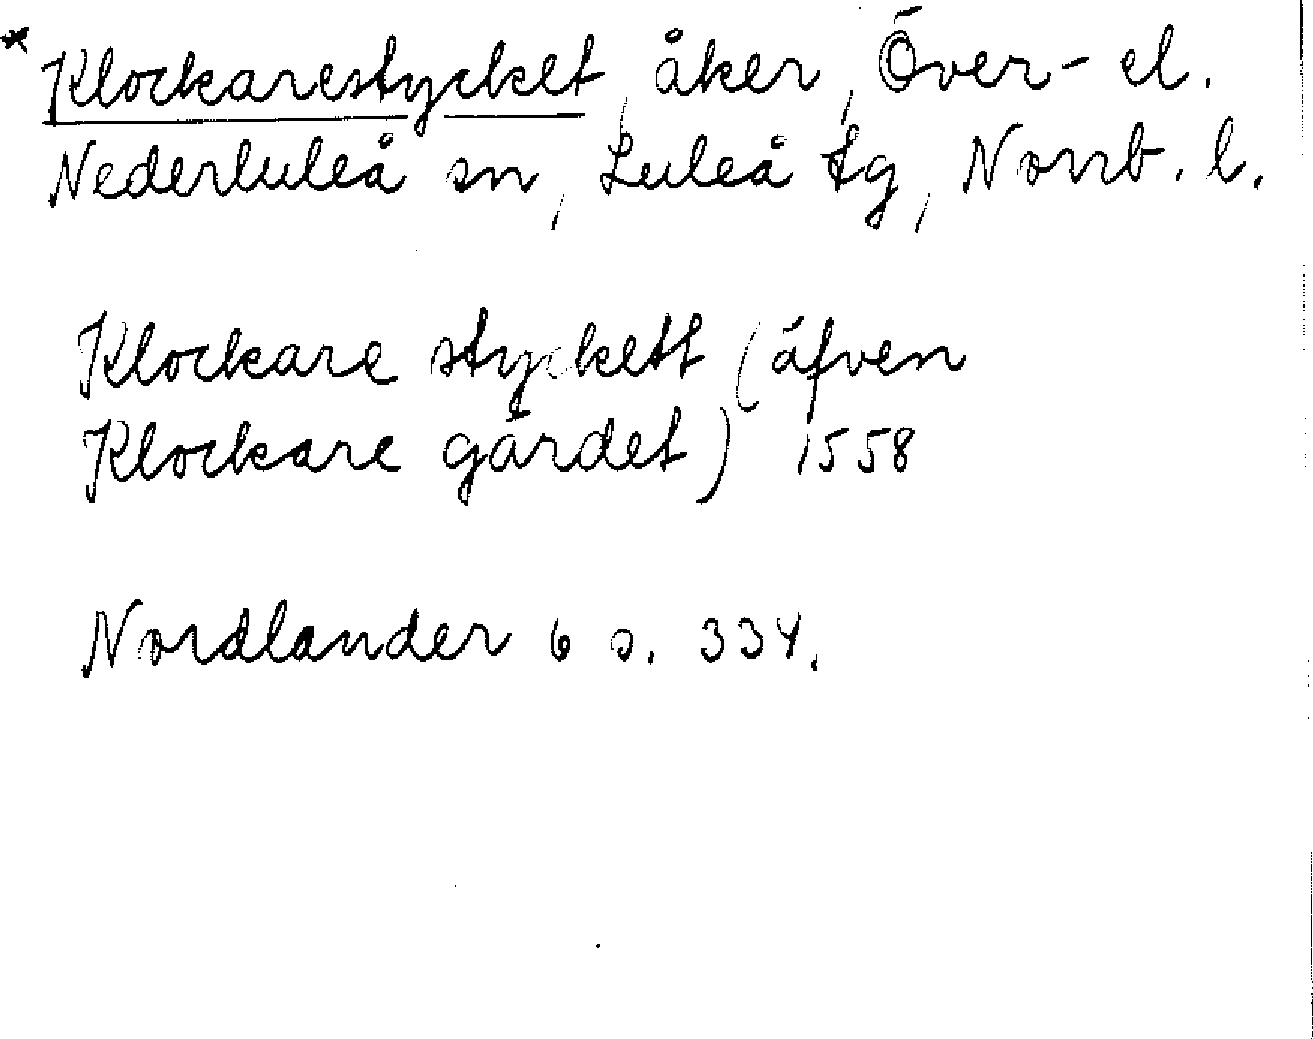 * Klockarestycket, åker, Över- el.
Nederluleå sn, Luleå tg, Norrb. l.
Klockare styckett (äfven
Klockare gärdet) 1558
Nordlander 6 s. 334.